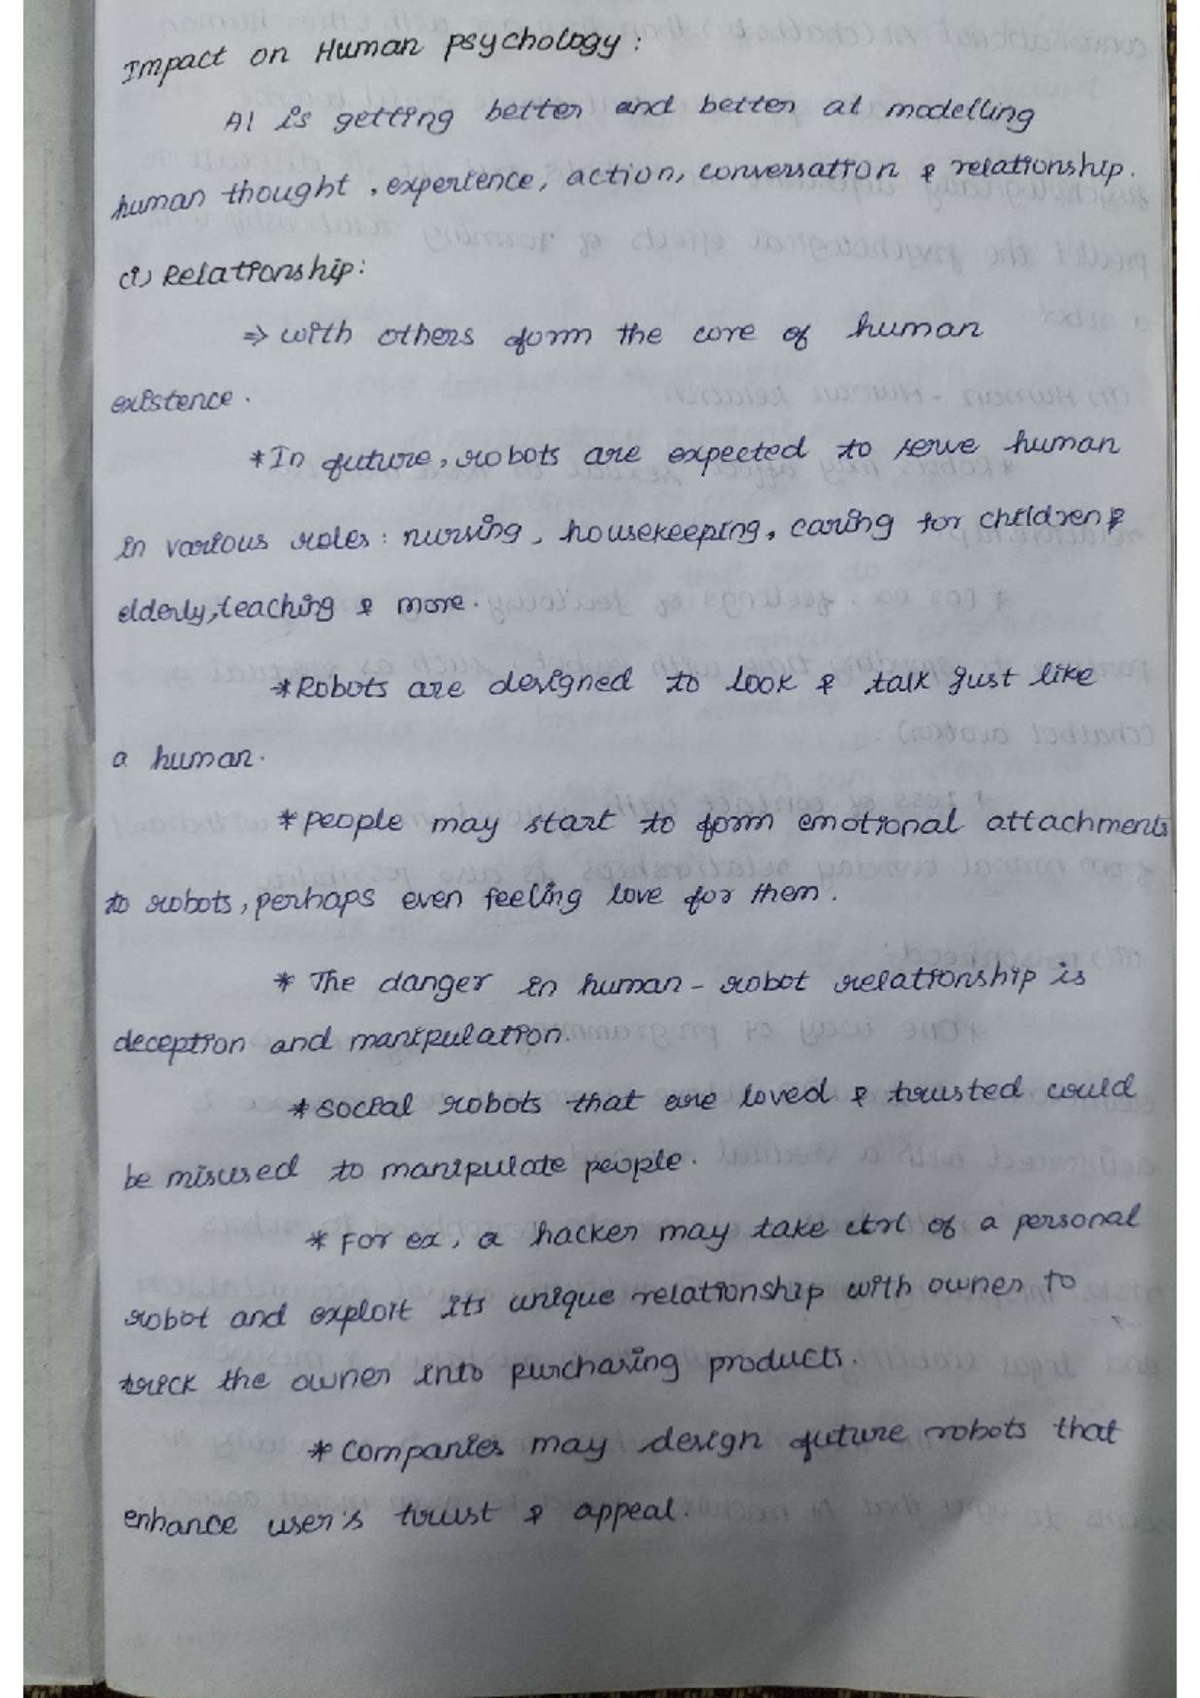 Impact on Human psychology :
AI is getting better and better at modelling
human thought, experience, action, conversation & relationship.
(i) Relationship:
⇒ with others form the core of human
existence.
* In future, robots are expected to serve human
in various roles: nursing, housekeeping, caring for children &
elderly, teaching & more.
* Robots are designed to look & talk just like
a human.
* people may start to form emotional attachments
to robots, perhaps even feeling love for them.
* The danger in human - robot relationship is
deception and manipulation.
* social robots that are loved & trusted could
be misused to manipulate people.
* For ex, a hacker may take ctrl of a personal
robot and exploit its unique relationship with owner to
trick the owner into purchasing products.
* Companies may design future robots that
enhance user's trust & appeal.